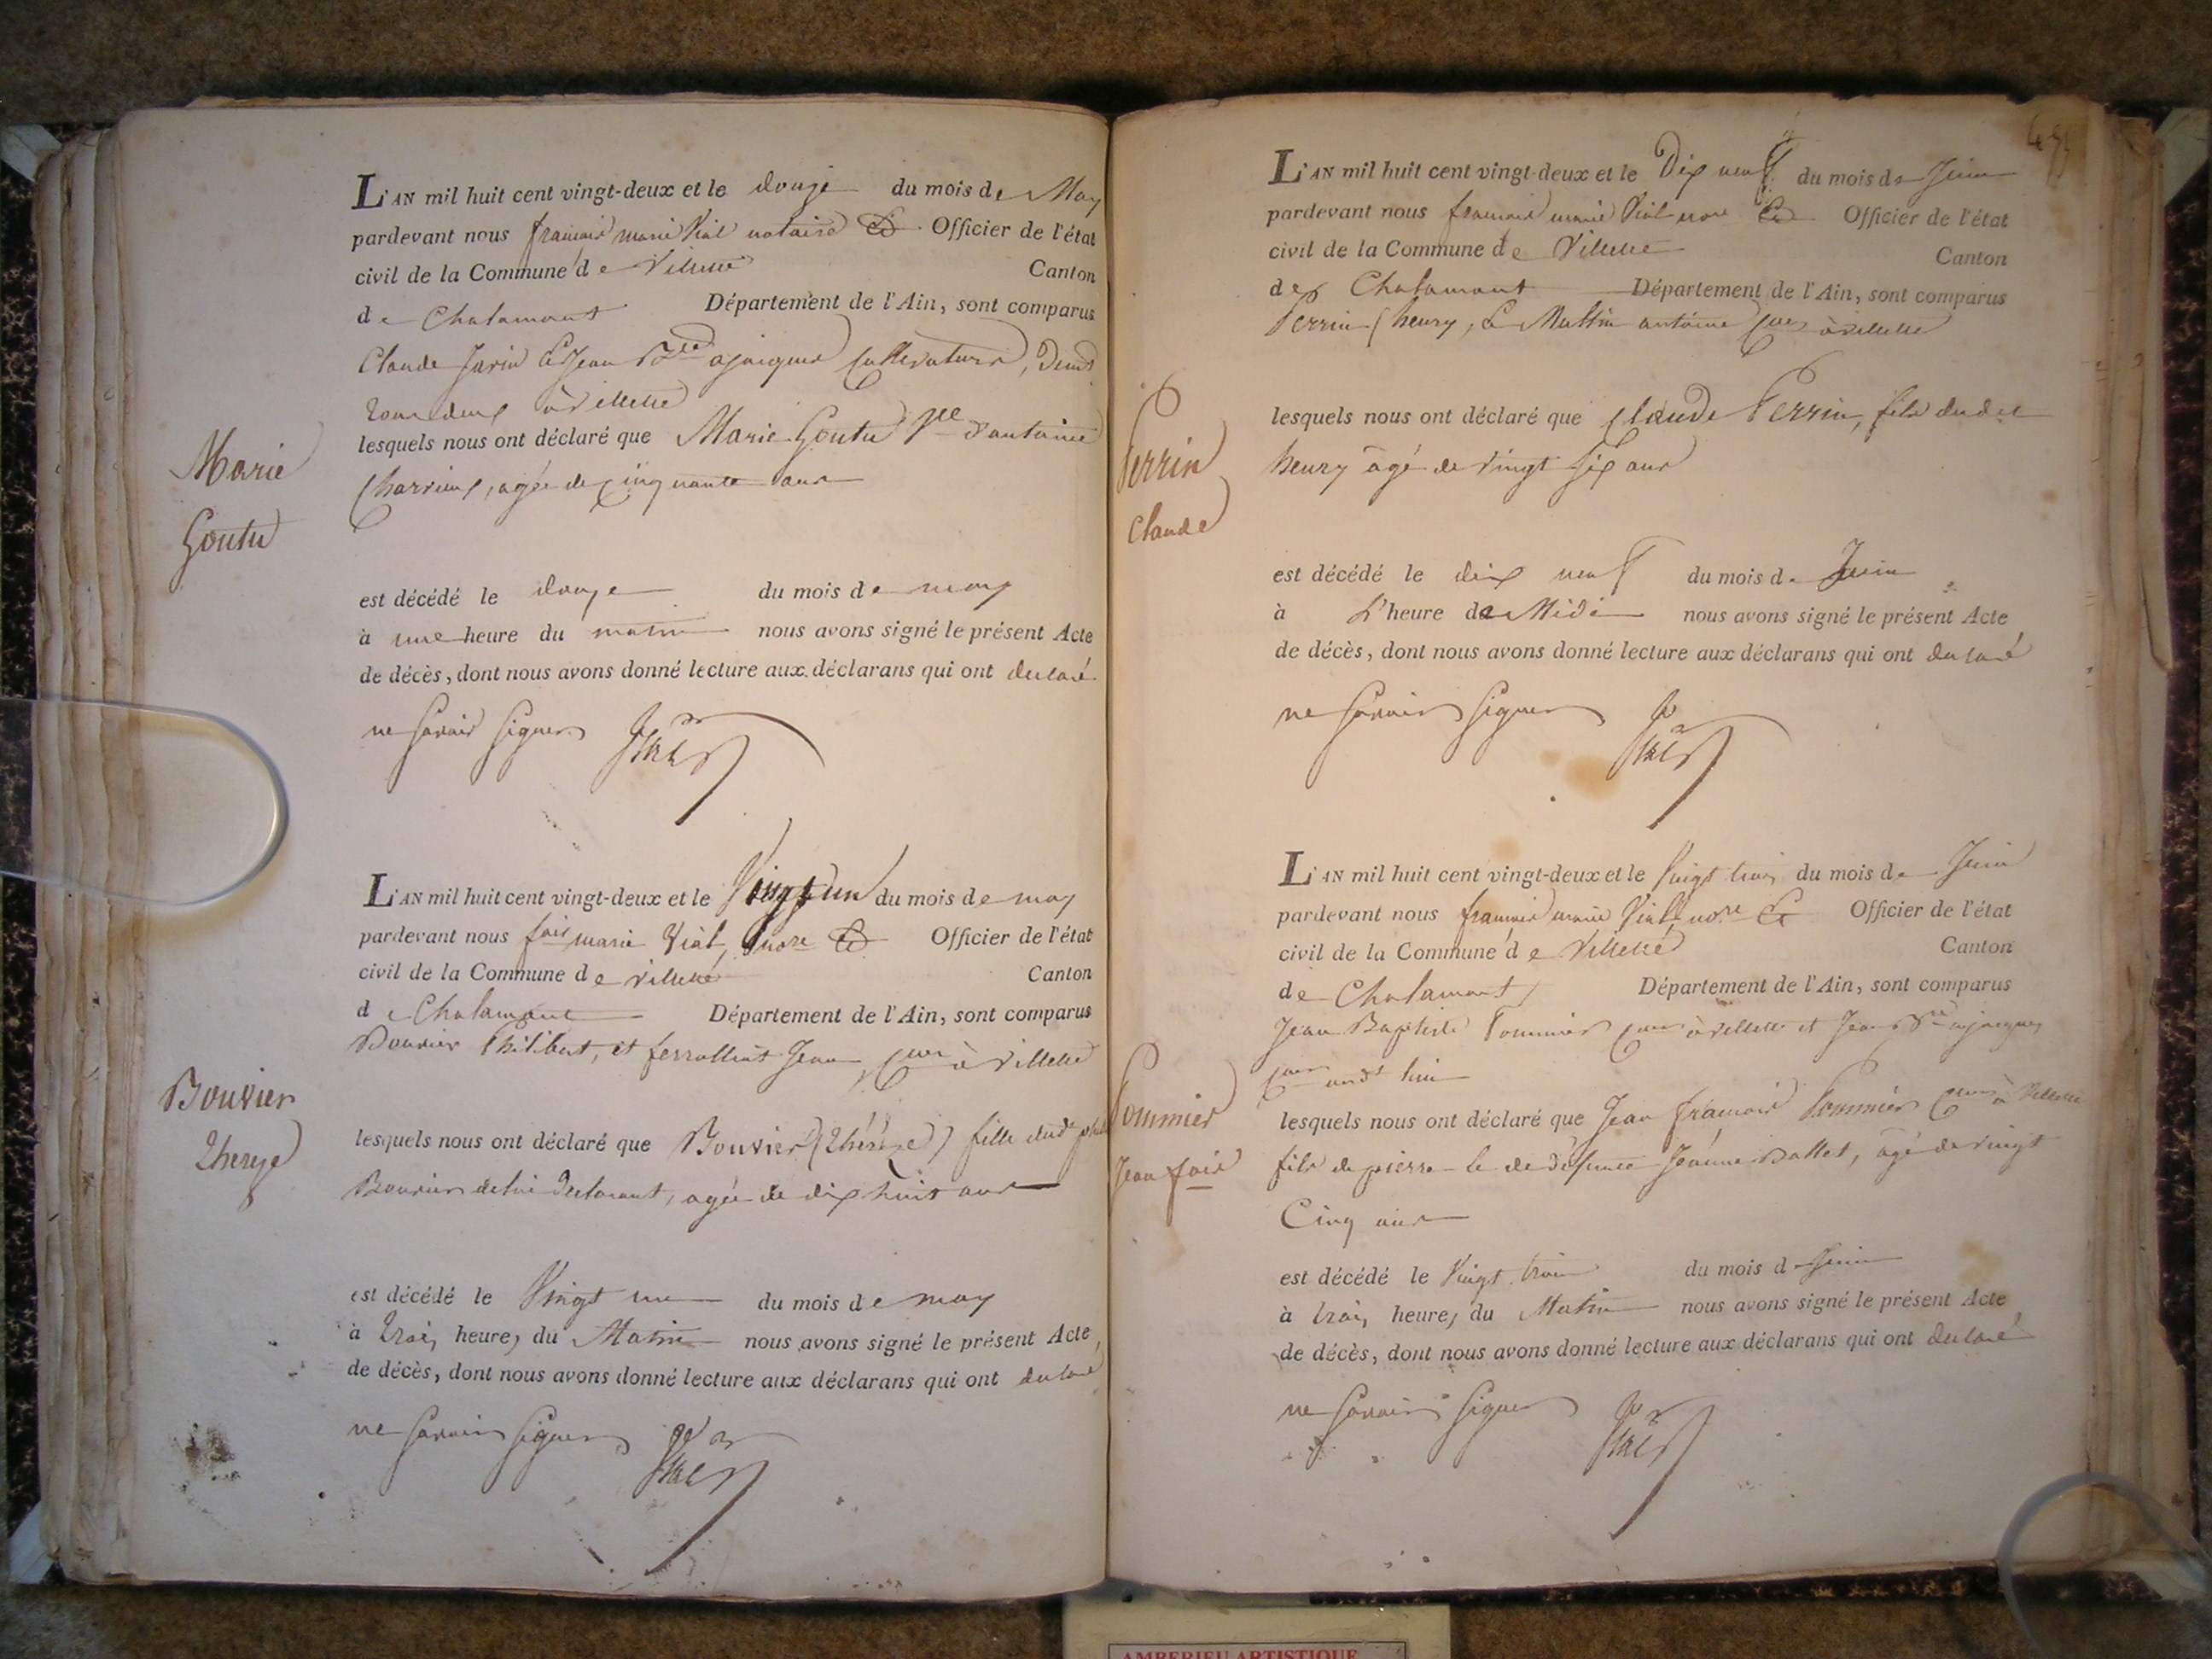 L'AN mil huit cent vingt-deux et le douze du mois de May
pardevant nous françois marie Vial notaire & Officier de l'état
civil de la Commune de Villette Canton
de Chalamont Département de l'Ain, sont comparus
Claude Jarin & Jean Bte ajacques Cultivateurs, Demt
tous deux à Villette
lesquels nous ont déclaré que Marie Goutu d'antoine
Charrieux, agée de Cinquante ans
Marie
Goutu
est décédé le douze du mois de may
à une heure du matin nous avons signé le présent Acte
de décès, dont nous avons donné lecture aux déclarans qui ont declaré
ne Savoir Signer
Vial
L'AN mil huit cent vingt-deux et le Vingt un du mois de may
pardevant nous fois marie Vial, nore & Officier de l'état
civil de la Commune de Villette Canton
de Chalamont Département de l'Ain, sont comparus
Bouvier Philibert, et ferrolliat Jean, à Villette
Bouvier
thereze
lesquels nous ont déclaré que Bouvier (thérèze) fille dudt
Bouvier declarant, agée de dix huit ans
est décédé le Vingt un du mois de may
à trois heures du Matin nous avons signé le présent Acte
de décès, dont nous avons donné lecture aux déclarans qui ont declaré
ne Savoir Signer
Vial
L'AN mil huit cent vingt-deux et le Dix neuf du mois de Juin
pardevant nous françois marie Vial nore & Officier de l'état
civil de la Commune de Villette Canton
de Chalamont Département de l'Ain, sont comparus
Perrin (henry, & Multin antoine à villette
Perrin
Claude
lesquels nous ont déclaré que Claude Perrin, fils dudit
henry âgé de vingt Six ans
est décédé le dix neuf du mois de Juin
à L'heure de Midi nous avons signé le présent Acte
de décès, dont nous avons donné lecture aux déclarans qui ont declaré
ne Savoir Signer
Vial
L'AN mil huit cent vingt-deux et le Vingt trois du mois de Juin
pardevant nous françois marie Vial, nore & Officier de l'état
civil de la Commune de Villette Canton
de Chalamont Département de l'Ain, sont comparus
Jean Baptiste Pommier à villette et Jean Bte ajacques
audt lieu
Pommier
Jean fois
lesquels nous ont déclaré que Jean françois Pommier à Villette
fils de pierre & de défunte Jeanne Ballet, âgé de vingt
Cinq ans
est décédé le Vingt trois du mois de Juin
à trois heures du Matin nous avons signé le présent Acte
de décès, dont nous avons donné lecture aux déclarans qui ont declaré
ne Savoir Signer
Vial
AMBERIEU ARTISTIQUE